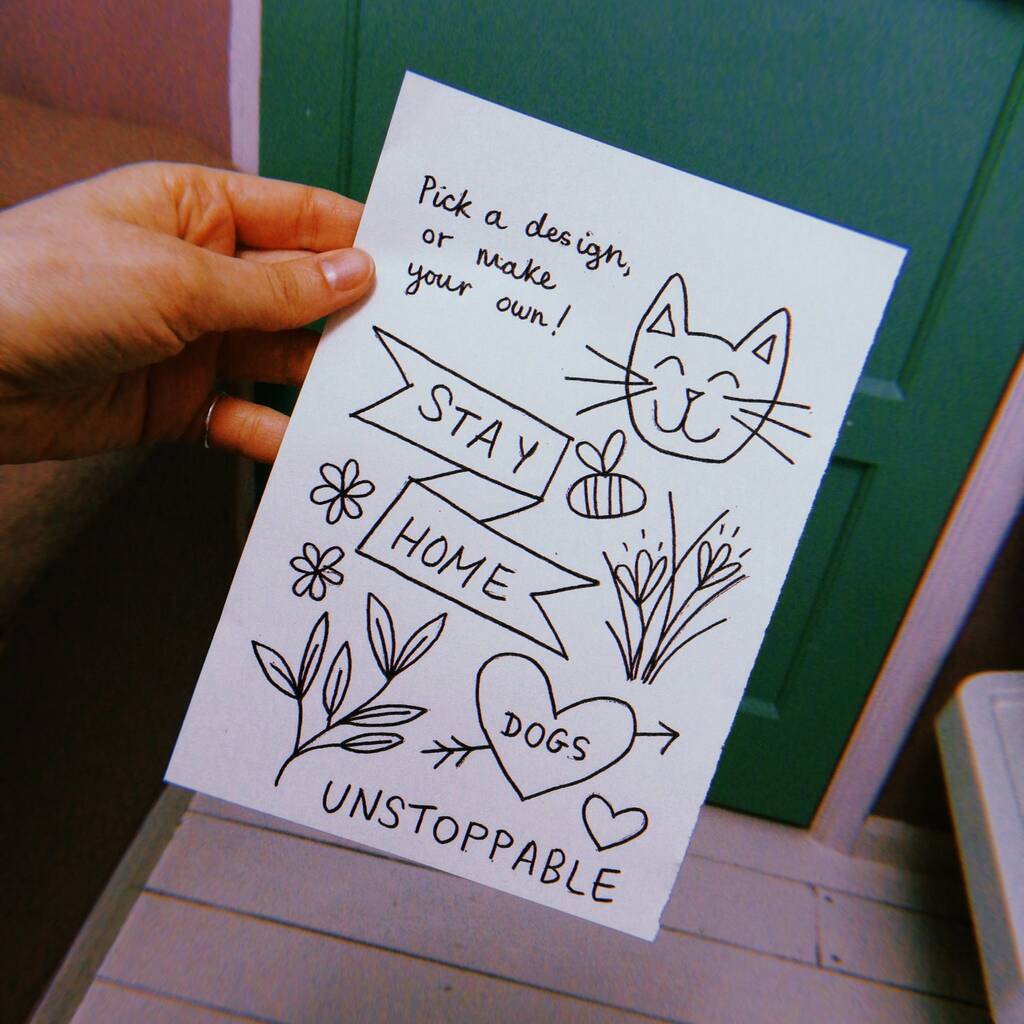 Pick a design,
or make
your own!
STAY
HOME
DOGS
UNSTOPPABLE